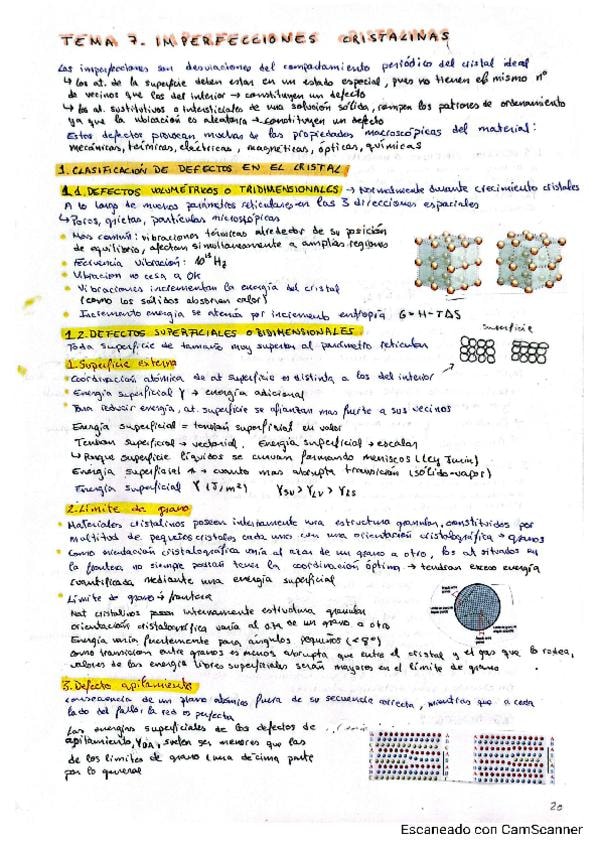 TEMA 7. IMPERFECCIONES CRISTALINAS
Las imperfecciones son desviaciones del comportamiento periódico del cristal ideal
↳ los at. de la superficie deben estar en un estado especial, pues no tienen el mismo nº
de vecinos que los del interior → constituyen un defecto
↳ los at. sustitutivos o intersticiales de una solución sólida, rompen los patrones de ordenamiento
ya que la ubicación es aleatoria → constituyen un defecto
Estos defectos provocan muchas de las propiedades macroscópicas del material:
mecánicas, térmicas, eléctricas, magnéticas, ópticas, químicas
1. CLASIFICACIÓN DE DEFECTOS EN EL CRISTAL
1.1. DEFECTOS VOLUMÉTRICOS O TRIDIMENSIONALES → Normalmente durante crecimiento cristales
A lo largo de muchos parámetros reticulares en las 3 direcciones espaciales
↳ Poros, grietas, partículas microscópicas
Mas comun: vibraciones térmicas alrededor de su posición
de equilibrio, afectan simultaneamente a amplias regiones
Frecuencia vibración: Hz
Vibracion no cesa a 0K
Vibraciones incrementan la energía del cristal
(como los sólidos absorben calor)
Incremento energía se atenúa por incremento entropía G=H-TΔS
1.2. DEFECTOS SUPERFICIALES O BIDIMENSIONALES
Superficie
Toda superficie de tamaño muy superior al parámetro reticular
1. Superficie externa
Coordinación atómica de at superficie es distinta a los del interior
Energía superficial γ → energía adicional
Para reducir energía, at. superficie se afianzan mas fuerte a sus vecinos
Energía superficial = tensión superficial en valor
Tension superficial → vectorial. Energía superficial → escalar
↳ Porque superficie líquidos se curvan formando meniscos (ley Jurin)
Energía superficial ↑ → cuanto mas abrupta transición (sólido-vapor)
Energía superficial γ (J/m²) γSV > γLV > γLS
2. Límite de grano
Materiales cristalinos poseen internamente una estructura granular, constituidos por
multitud de pequeños cristales cada uno con una orientación cristalográfica → granos
Como orientación cristalográfica varía al azar de un grano a otro, los at situados en
la frontera no siempre podran tener la coordinación óptima → tendran exceso energía
cuantificada mediante una energía superficial
Límite de grano → frontera
Mat cristalinos poseen internamente estructura granular
orientación cristalográfica varía al de un grano a otro
Energía varía fuertemente para ángulos pequeños (<8º)
como transicion entre granos es menos abrupta que entre el cristal y el gas que lo rodea,
valores de las energía libres superficiales serán mayores en el límite de grano
3. Defecto apilamiento
consecuencia de un plano atómico fuera de su secuencia correcta, mientras que a cada
lado del fallo la red es perfecta
Las energías superficiales de los defectos de
apilamiento, suelen ser menores que las
de los límites de grano (una décima parte
por lo general
20
Escaneado con CamScanner